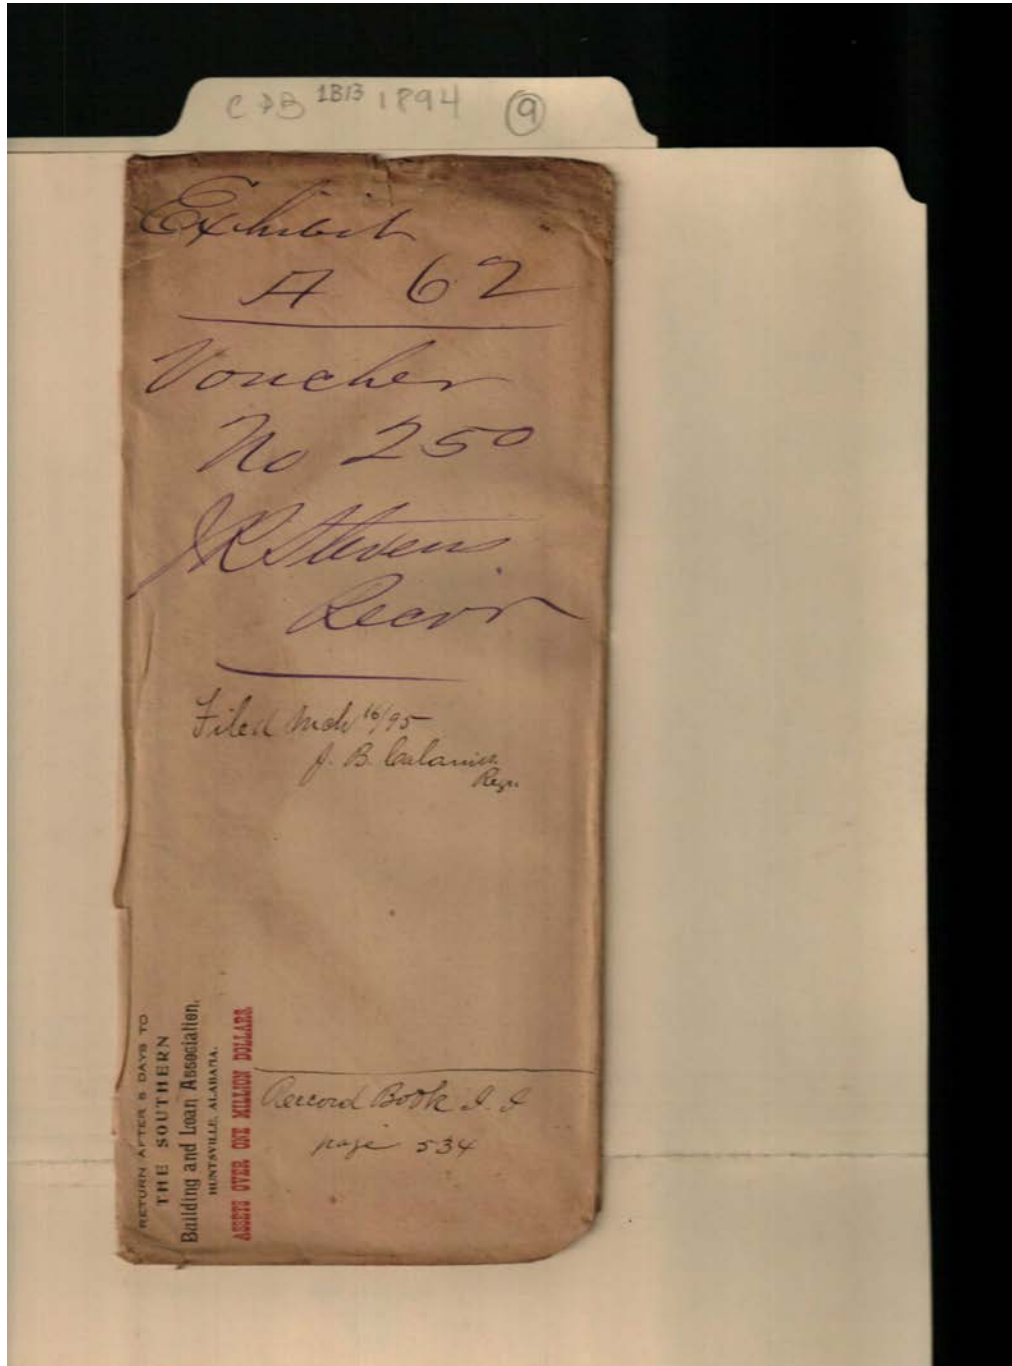 C & B 1B13 1894 9
Exhibit
A 62
Voucher
No 250
JR Stevens
Recvr
Filed Mch 16/95
J. B.
Regr
RETURN AFTER 5 DAYS TO
THE SOUTHERN
Building and Loan Association,
HUNTSVILLE, ALABAMA.
ASSETS OVER ONE MILLION DOLLARS.
Record Book I. I
page 534